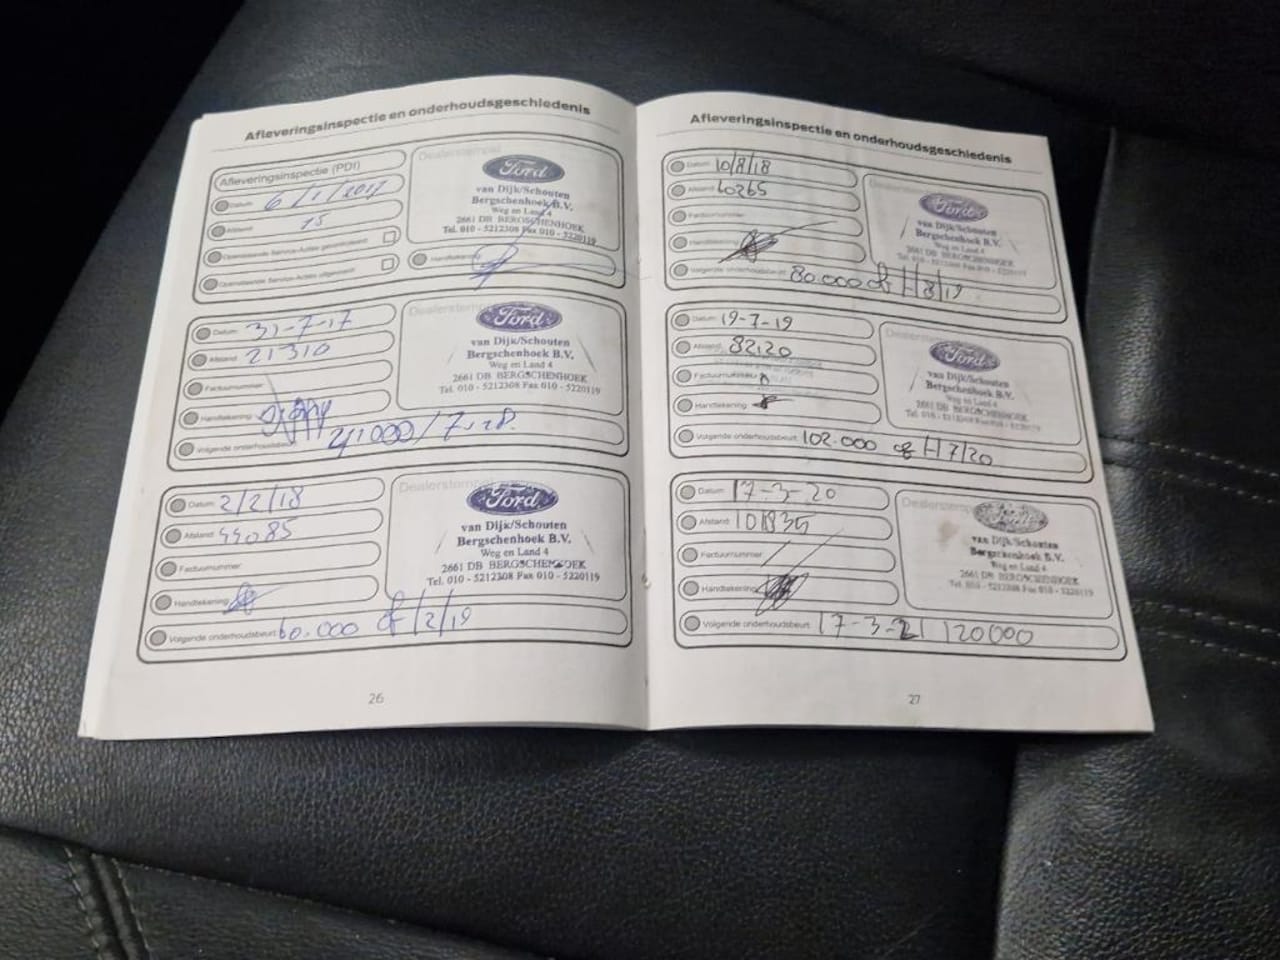 Afleveringsinspectie en onderhoudsgeschiedenis
Afleveringsinspectie (PDI)
Datum: 6/1/2017
Afstand: 15
Openstaande Service-Acties gecontroleerd:
Openstaande Service-Acties uitgevoerd:
Dealerstempel
Ford
van Dijk/Schouten
Bergschenhoek B.V.
Weg en Land 4
2661 DB BERGSCHENHOEK
Tel. 010 - 5212308 Fax 010 - 5220119
Handtekening:
Datum: 31-7-17
Afstand: 21310
Factuurnummer:
Handtekening:
Volgende onderhoudsbeurt: 41000/7-18
Dealerstempel
Ford
van Dijk/Schouten
Bergschenhoek B.V.
Weg en Land 4
2661 DB BERGSCHENHOEK
Tel. 010 - 5212308 Fax 010 - 5220119
Datum: 2/2/18
Afstand: 44085
Factuurnummer:
Handtekening:
Volgende onderhoudsbeurt: 60.000 of /2/19
Dealerstempel
Ford
van Dijk/Schouten
Bergschenhoek B.V.
Weg en Land 4
2661 DB BERGSCHENHOEK
Tel. 010 - 5212308 Fax 010 - 5220119
26
Afleveringsinspectie en onderhoudsgeschiedenis
Datum: 10/8/18
Afstand: 60265
Factuurnummer:
Handtekening:
Volgende onderhoudsbeurt: 80.000 of /8/19
Dealerstempel
Ford
van Dijk/Schouten
Bergschenhoek B.V.
Weg en Land 4
2661 DB BERGSCHENHOEK
Tel. 010 - 5212308 Fax 010 - 5220119
Datum: 19-7-19
Afstand: 82120
Factuurnummer:
Handtekening:
Volgende onderhoudsbeurt: 102.000 of /7/20
Dealerstempel
Ford
van Dijk/Schouten
Bergschenhoek B.V.
Weg en Land 4
2661 DB BERGSCHENHOEK
Tel. 010 - 5212308 Fax 010 - 5220119
Datum: 17-3-20
Afstand: 101835
Factuurnummer:
Handtekening:
Volgende onderhoudsbeurt: 17-3-21 120000
Dealerstempel
van Dijk/Schouten
Bergschenhoek B.V.
Weg en Land 4
2661 DB BERGSCHENHOEK
Tel. 010 - 5212308 Fax 010 - 5220119
27